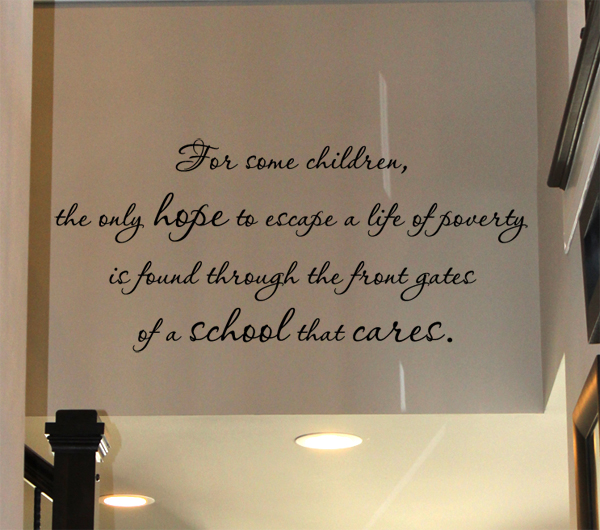 For some children,
the only hope to escape a life of poverty
is found through the front gates
of a school that cares.